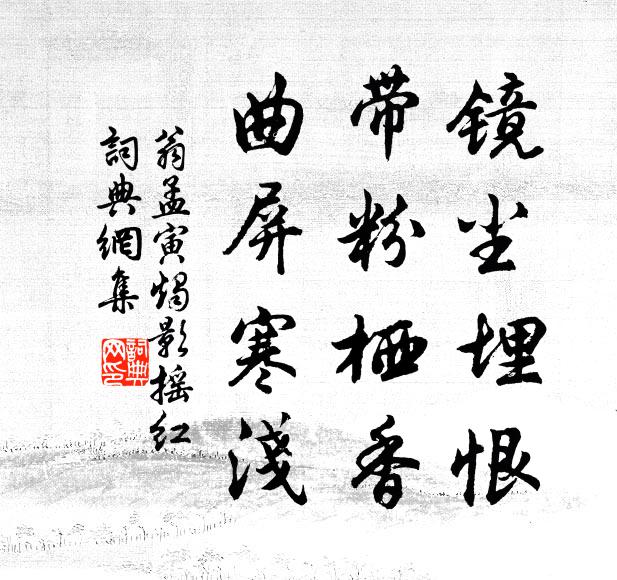 镜尘埋恨
带粉栖香
曲屏寒淺
翁孟寅燭影摇红
詞典網集
詞典
网印